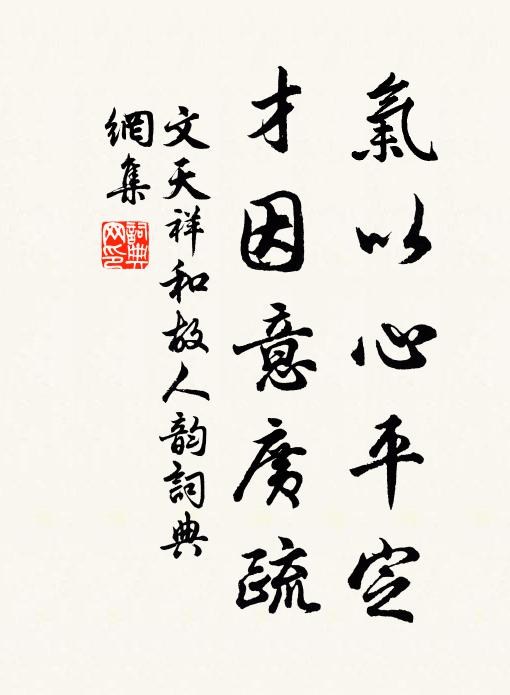 氣以心平定
才因意廣疏
文天祥和故人韵詞典
網集
詞典
网印